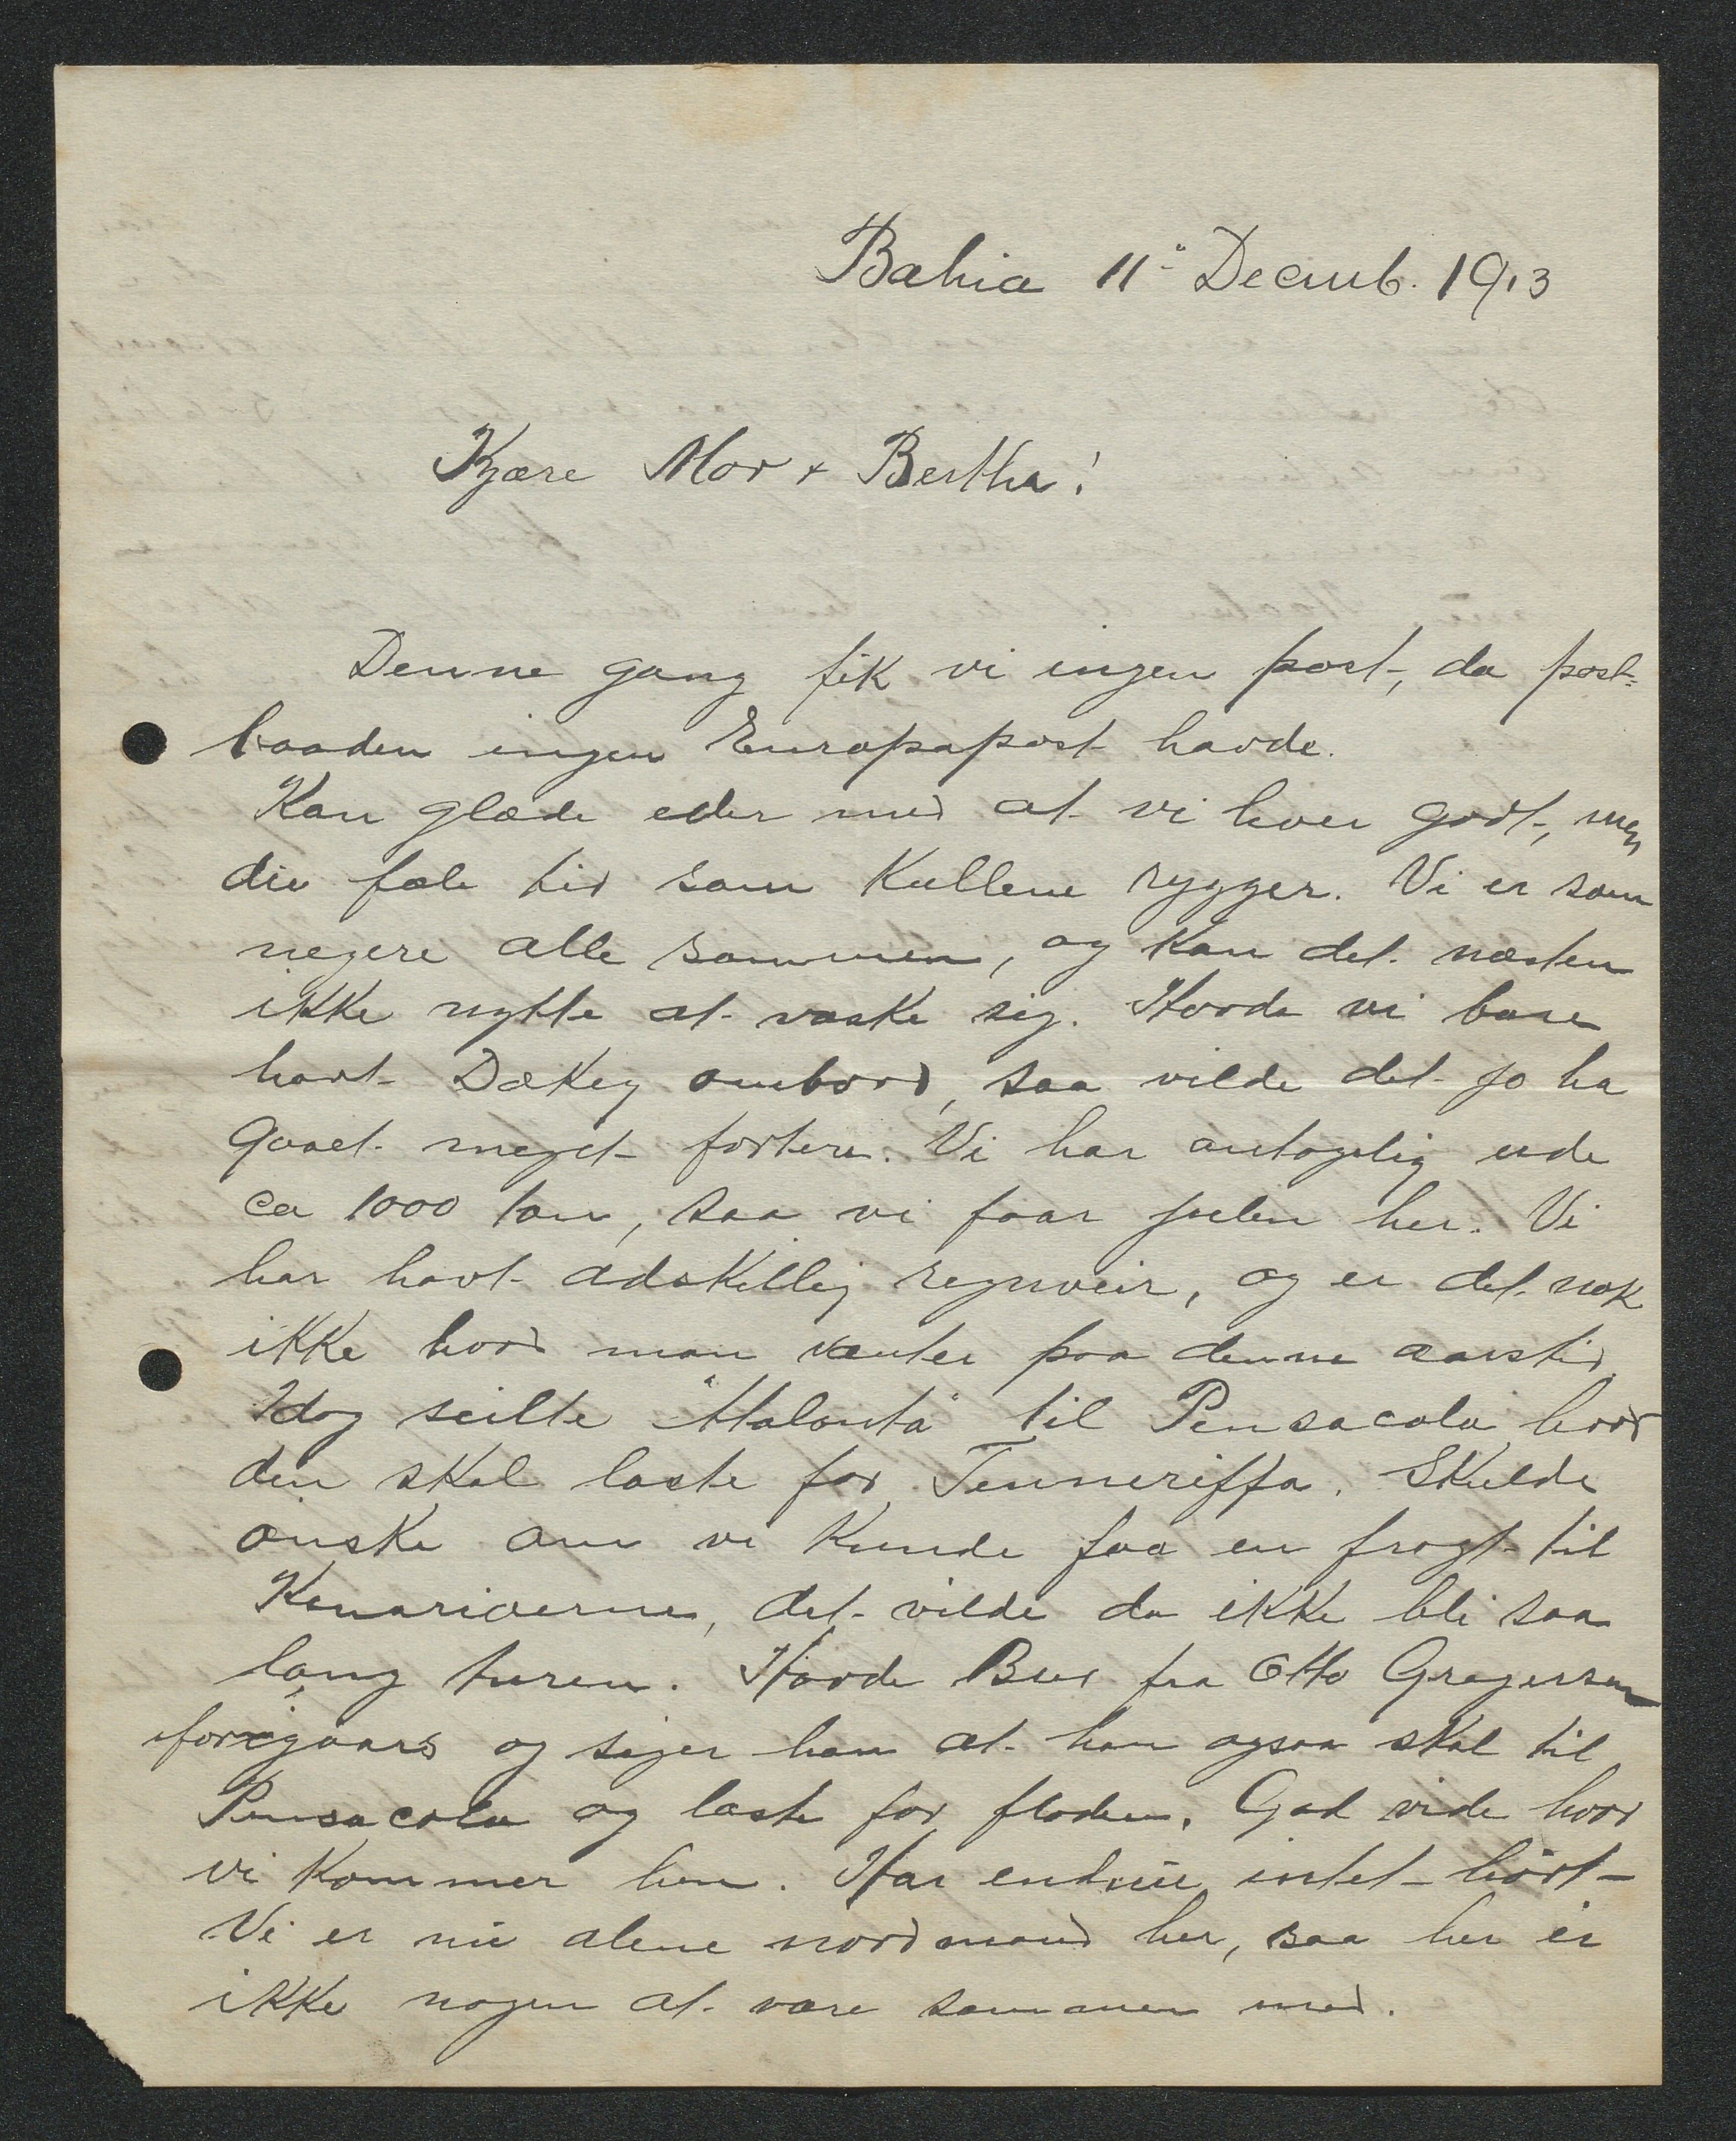 Bahia 11" Decemb. 1913
Kjære Mor + Bertha!
Denne gang fik vi ingen post, da post=
baaden ingen Europapost havde.
Kan glæde eder med at vi lever godt, men
die fæle tid som Kullene rygger. Vi er som
negere alle sammen, og Kan det næsten
ikke nytte at vaske sig. Havde vi bare
havt DæKey ombord, saa vilde det jo ha
gaaet meget fortere. Vi har antagelig ude
ca 1000 ton, saa vi faar julen her. Vi
har havt adskillig regnveir, og er det nok
ikke hvad man venter paa denne aarstid.
Idag seilte "Atalanta" til Pensacola hvor
den skal laste for Tenneriffa. Skulde
ønske om vi Kunde faa en fragt til
Kanariøerne, det vilde da ikke bli saa
lang turen. Havde Brev fra Otto Gregersen
iforigaars og siger han at han ogsaa skal til
Pensacola og laste for floden. Gad vide hvor
vi kommer hen. Har endnu intet hørt
Vi er nu alene nordmand her, saa her er
ikke nogen at være sammen med.